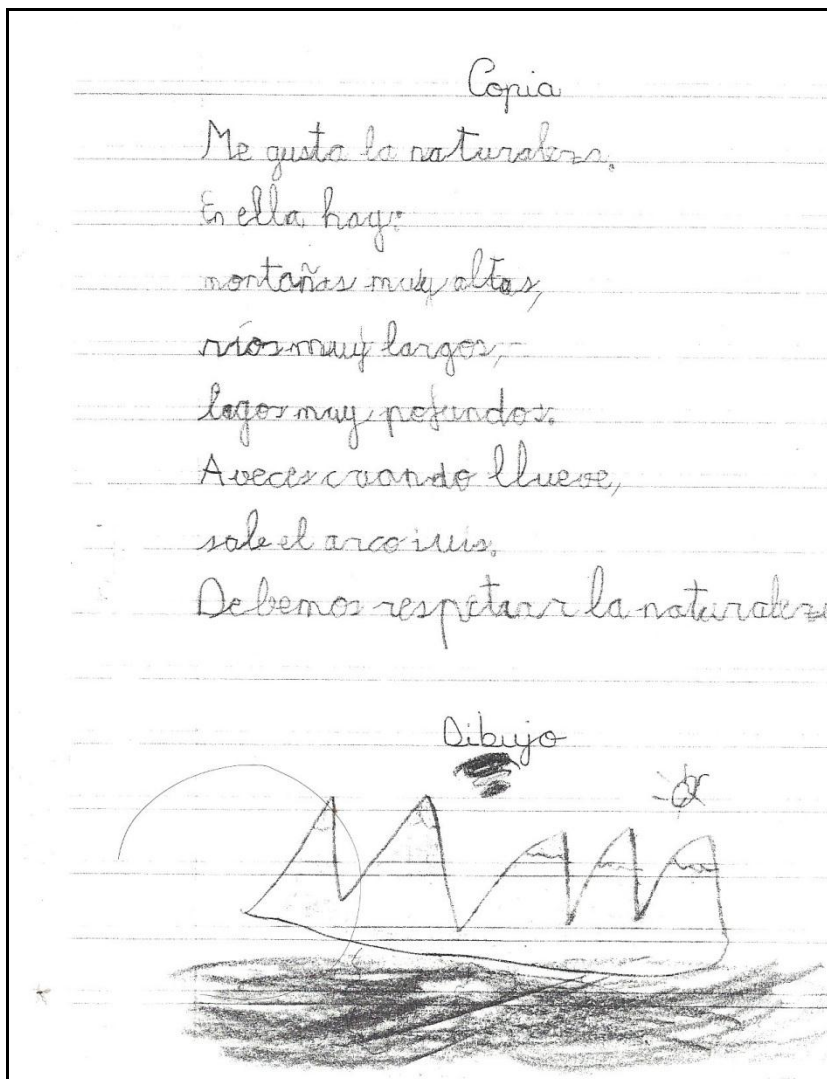 Copia
Me gusta la naturaleza.
En ella hay:
montañas muy altas,
ríos muy largos,
lagos muy pofundos.
A veces cuando llueve,
sale el arco iris.
Debemos respetar la naturaleza
Dibujo